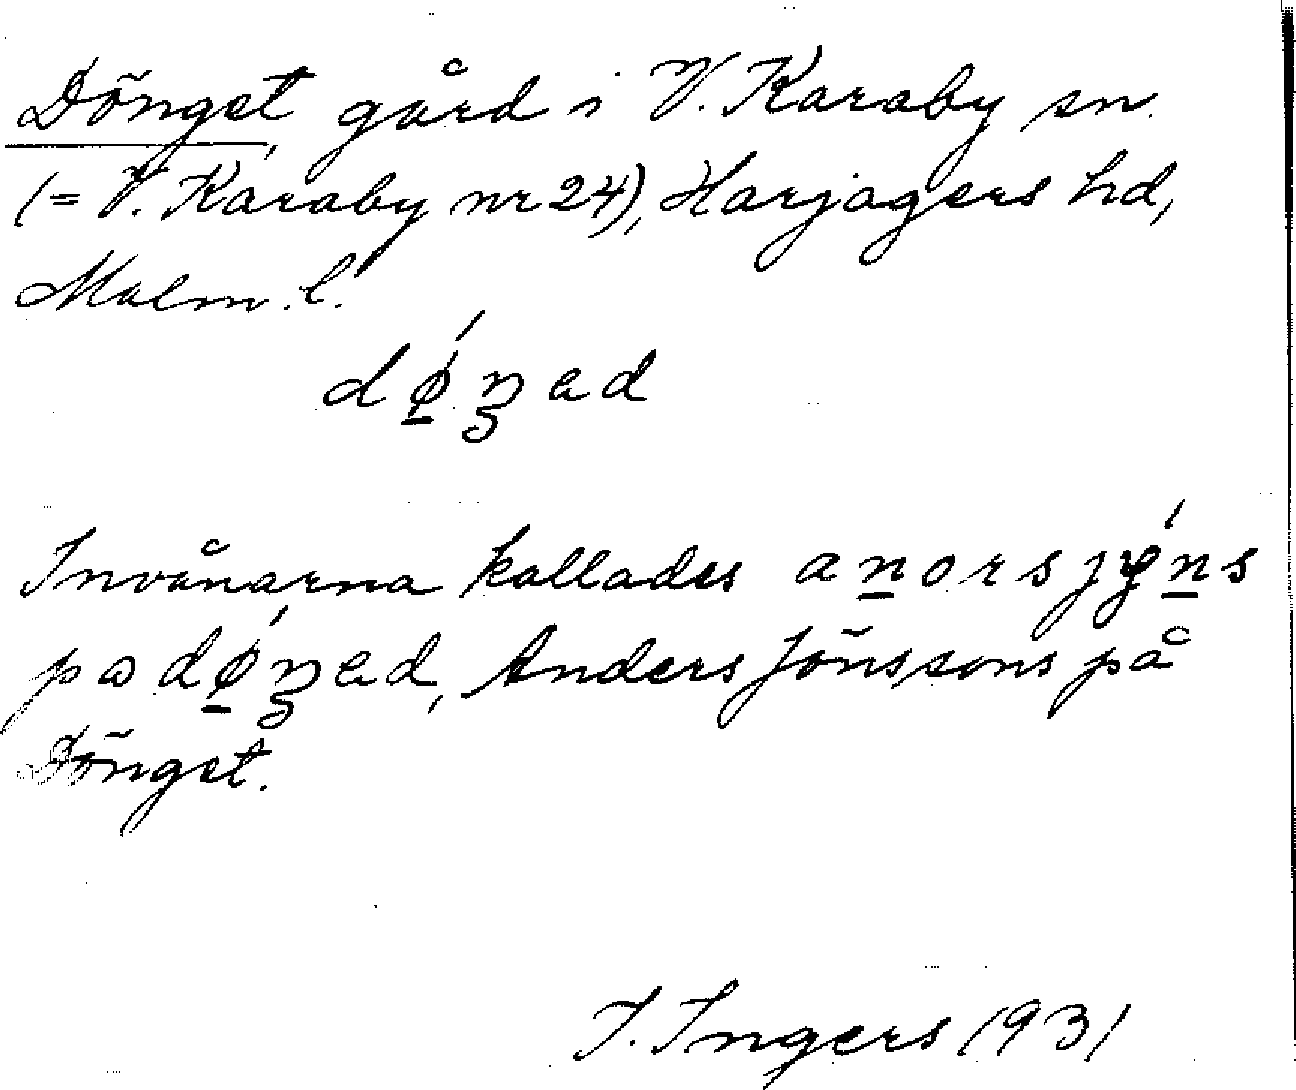 Dönget, gård i V. Karaby sn.
(= V. Karaby nr 24), Harjagers hd,
Malm. l.
dǿ̲ŋad
Invånarna kallades an̲orsjýn̲s
pa dǿ̲ŋad, Anders Jönssons på
Dönget.
I. Ingers 1931